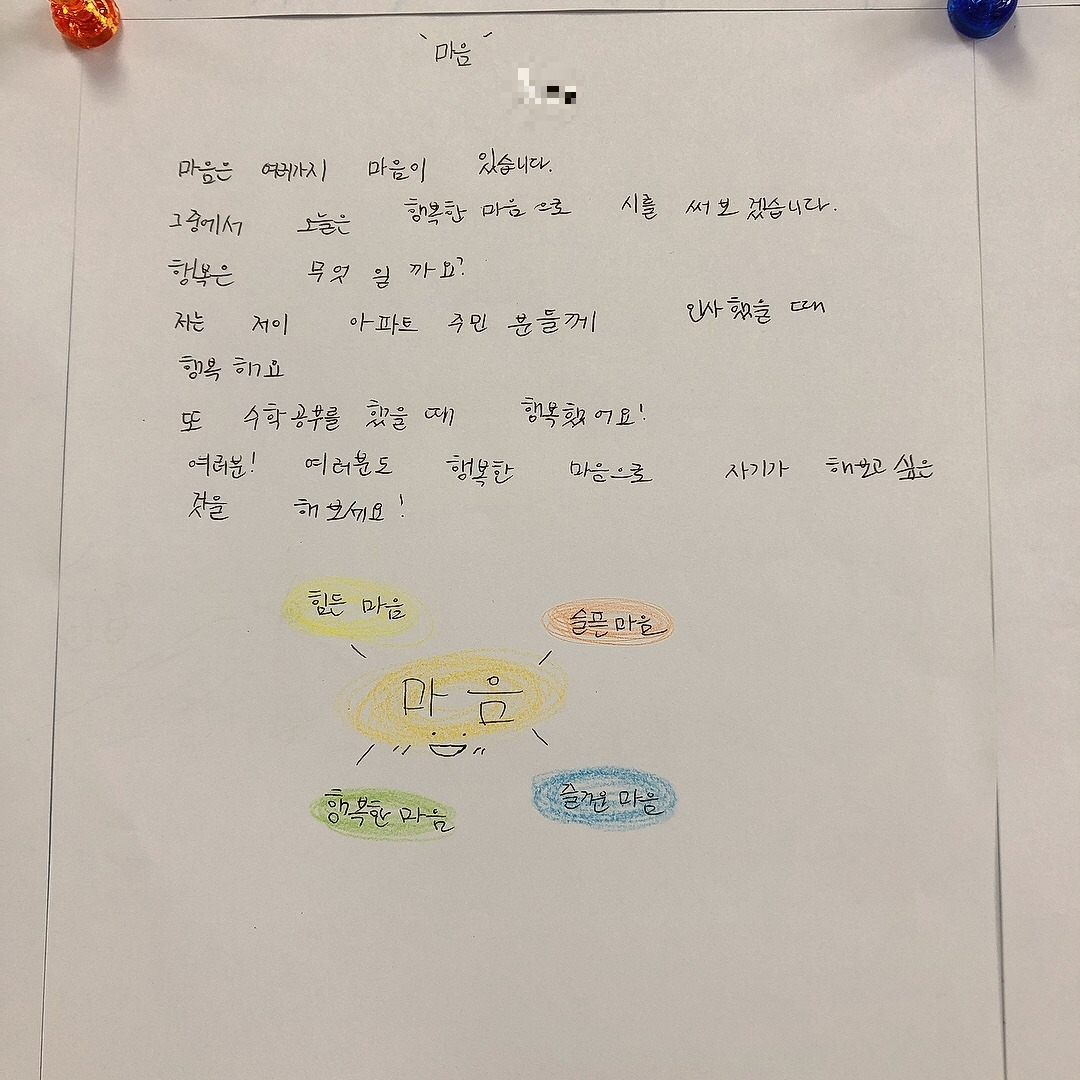 `마음´
마음은 여러가지 마음이 있습니다.
그중에서 오늘은 행복한 마음으로 시를 써보겠습니다.
행복은 무엇 일 까요?
저는 저이 아파트 주민 분들께 인사했을 때
행복해요
또 수학공부를 했을 때 행복했어요!
여러분! 여러분도 행복한 마음으로 자기가 해보고 싶은
것을 해보세요!
힘든 마음
슬픈 마음
마음
행복한 마음
즐거운 마음